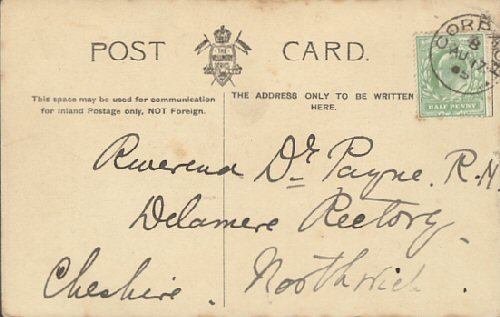 POST CARD.
This space may be used for communication
for Inland Postage only, NOT Foreign.
THE ADDRESS ONLY TO BE WRITTEN
HERE.
HALF PENNY
AU 17
05
Reverend Dr Payne. R.N.
Delamere Rectory.
Northwich.
Cheshire.